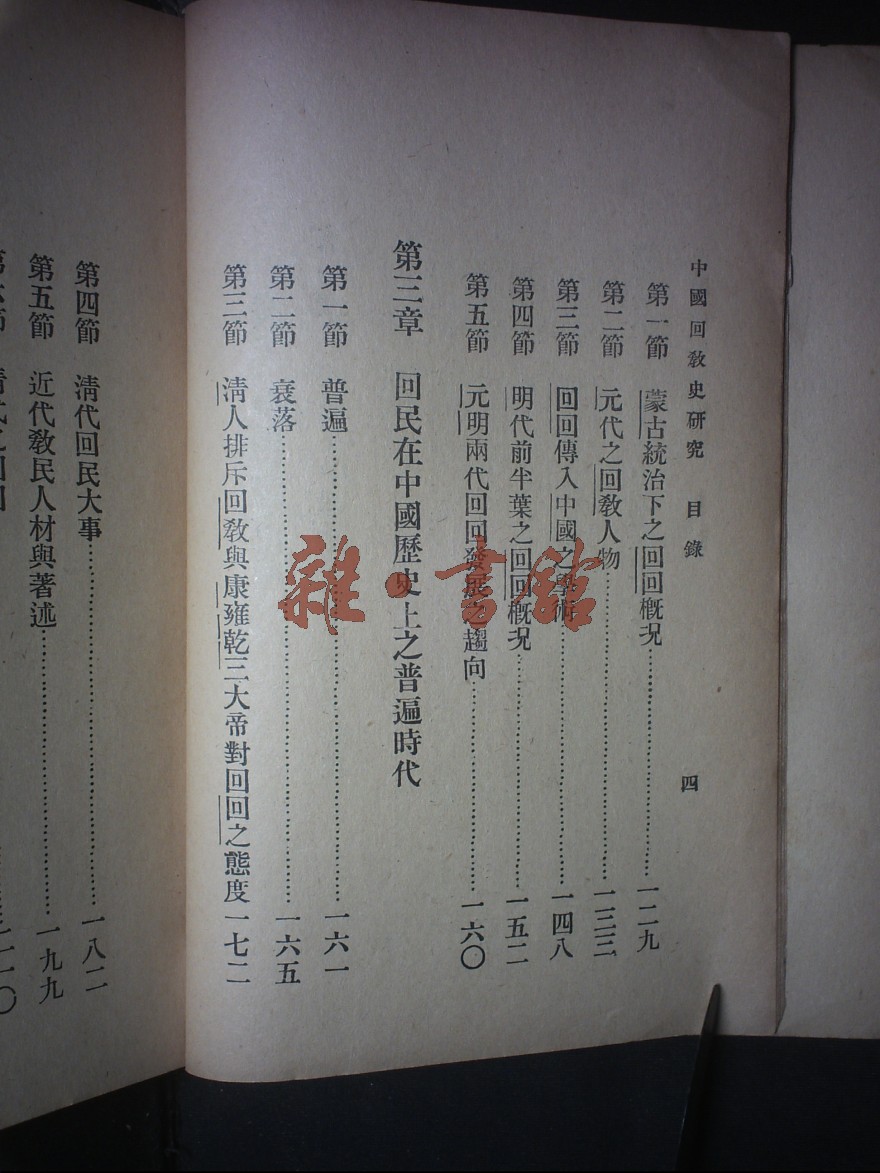 中國回敎史研究　目錄　四
第一節　蒙古統治下之回回槪況…………一二九
第二節　元代之回敎人物…………一三三
第三節　回回傳入中國之學術…………一四八
第四節　明代前半葉之回回槪況…………一五二
第五節　元明兩代回回發展之趨向…………一六〇
第三章　回民在中國歷史上之普遍時代
第一節　普遍…………一六一
第二節　衰落…………一六五
第三節　淸人排斥回敎與康雍乾三大帝對回回之態度一七二
第四節　淸代回民大事…………一八二
第五節　近代敎民人材與著述…………一九九
雜·書館